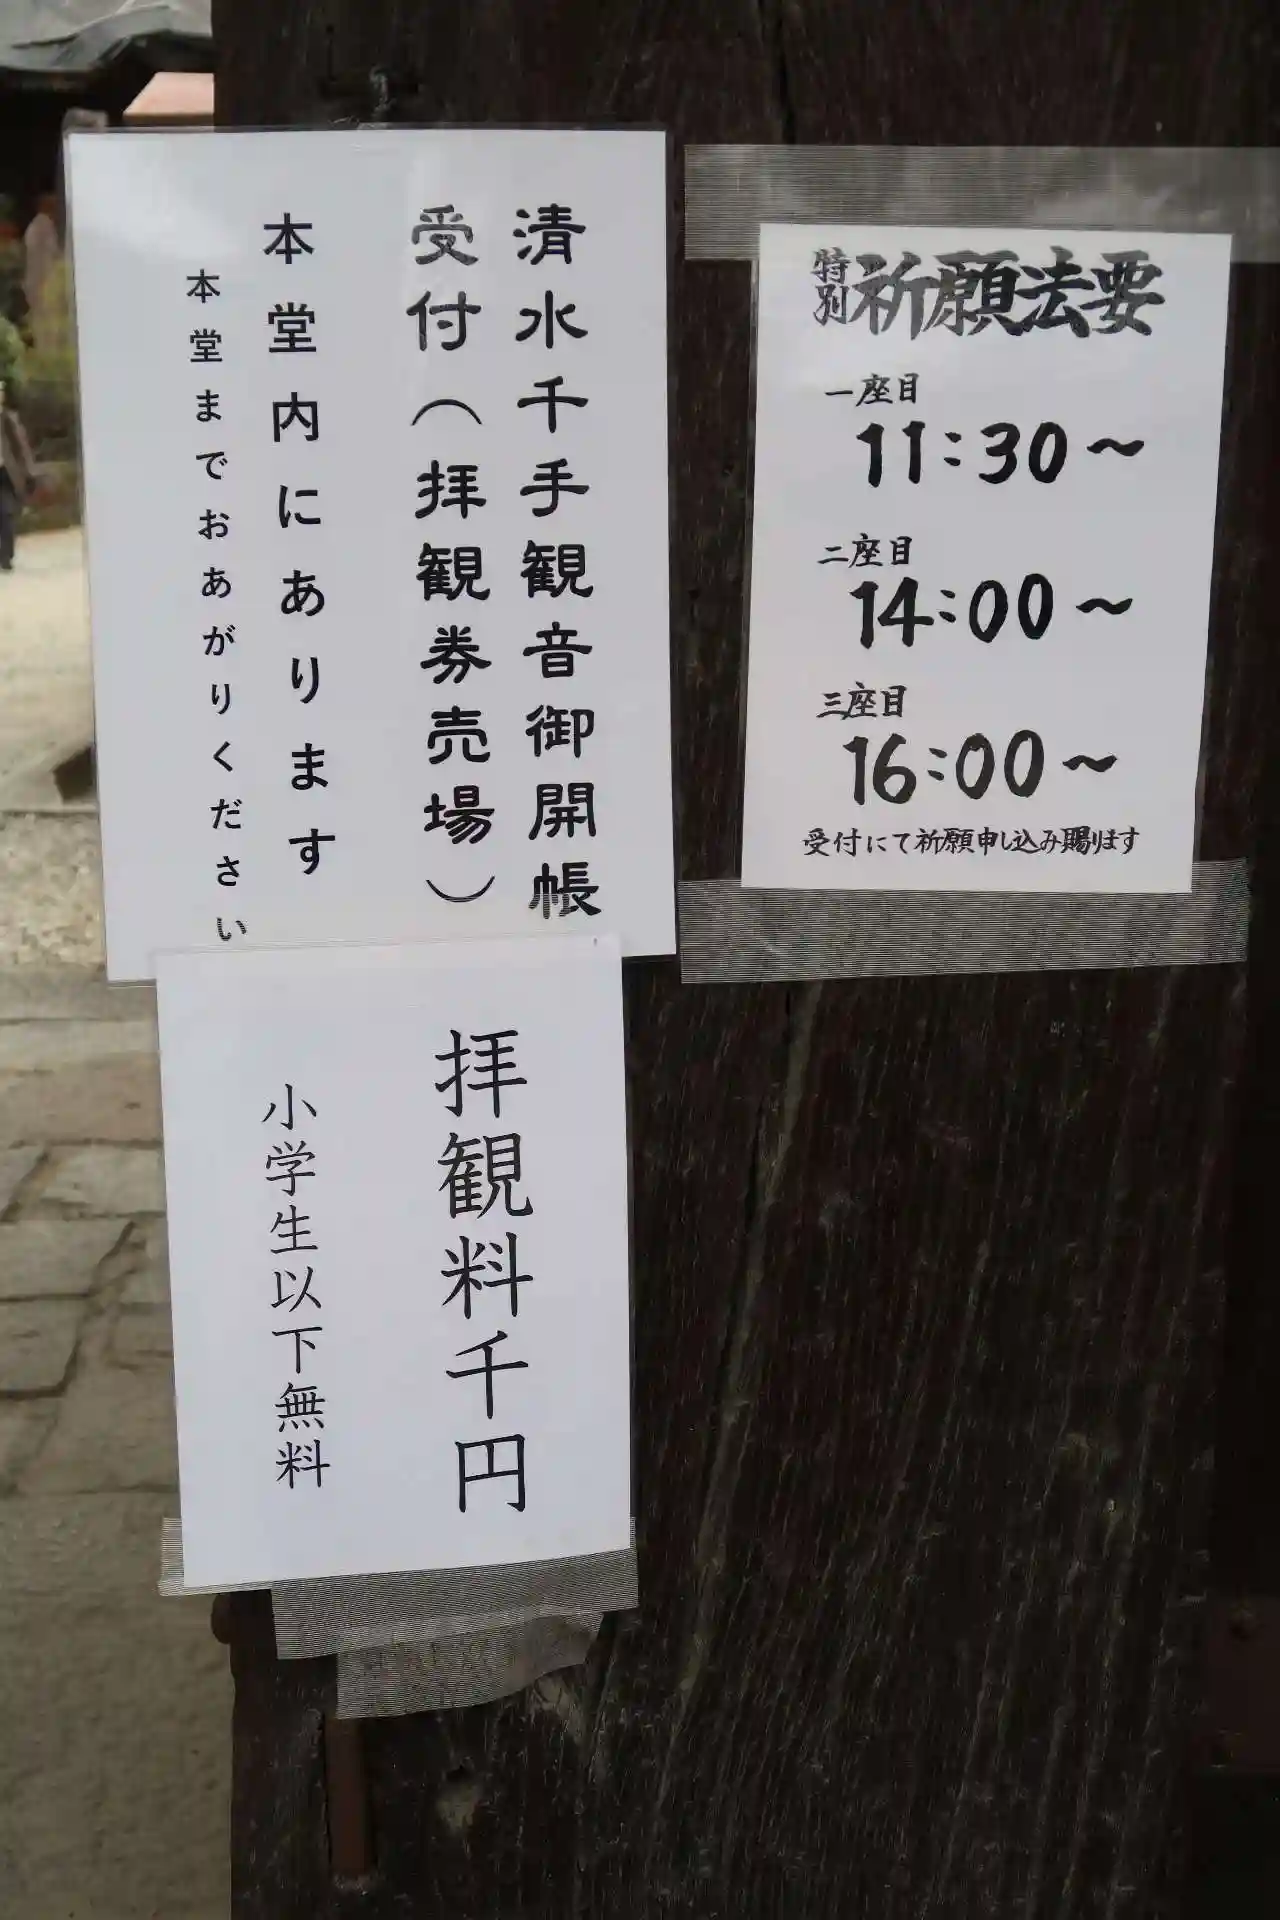 清水千手観音御開帳
受付（拝観券売場）
本堂内にあります
本堂までおあがりください
特別祈願法要
一座目
11:30～
二座目
14:00～
三座目
16:00～
受付にて祈願申し込み賜ります
拝観料千円
小学生以下無料